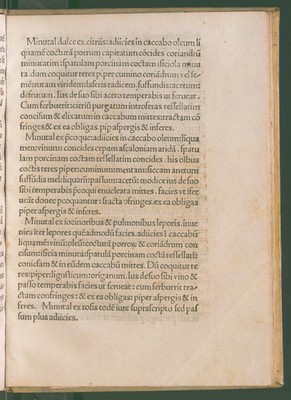 Minutal dulce ex citriis: adiicies in caccabo oleum li
quamē cocturā porrum capitatum cōcides coriandrū
minutatim: spatulam porcinam coctam isiciola minu
ta. dum coquitur teres piper cuminū coriādrum vel se
mē rutam viridem laseris radicem. suffundis: acetum:
defrutum. Ius de suo sibi aceto temperabis ut ferueat.
Cum ferbuerit: citriū purgatum intro foras tessellatim
concisum & elixatum in caccabum mittes: tractam cō
fringes & ex ea obligas. pip aspergis & inferes.
Minutal ex pcoquis: adiicies in caccabo oleum: liqua
men: vinum: concides cepam ascaloniam aridā. spatu
lam porcinam coctam tessellatim concides. his oībus
coctis teres piper: cuminum: mentam siccam anetum:
suffūdis mel: liquamē: passum: acetū modice: ius de suo
sibi temperabis: pcoqui enucleata mittes. facies vt fer
ueāt donec pcoquantur: tracta cōfringes. ex ea obligas
piper aspergis & inferes.
Minutal ex iocinoribus & pulmonibus leporis. inue
nies īter lepores quēadmodū facies. adiicies ī caccabū
liquamē: vinū: oleū: cocturā porros: & coriādrum con
cisum: isicia minuta: spatulā porcinam coctā tessellatī
concisam & in eūdem caccabū mittes. Dū coquitur te
res: piper: ligusticum: origanum. Ius de suo sibi vino &
passo temperabis facies ut ferueat: cum ferbuerit tra-
ctam confringes: & ex ea obligas: piper aspergis & in
feres. Minutal ex rosis eodē iure suprascripto sed pas
sum plus adiicies.